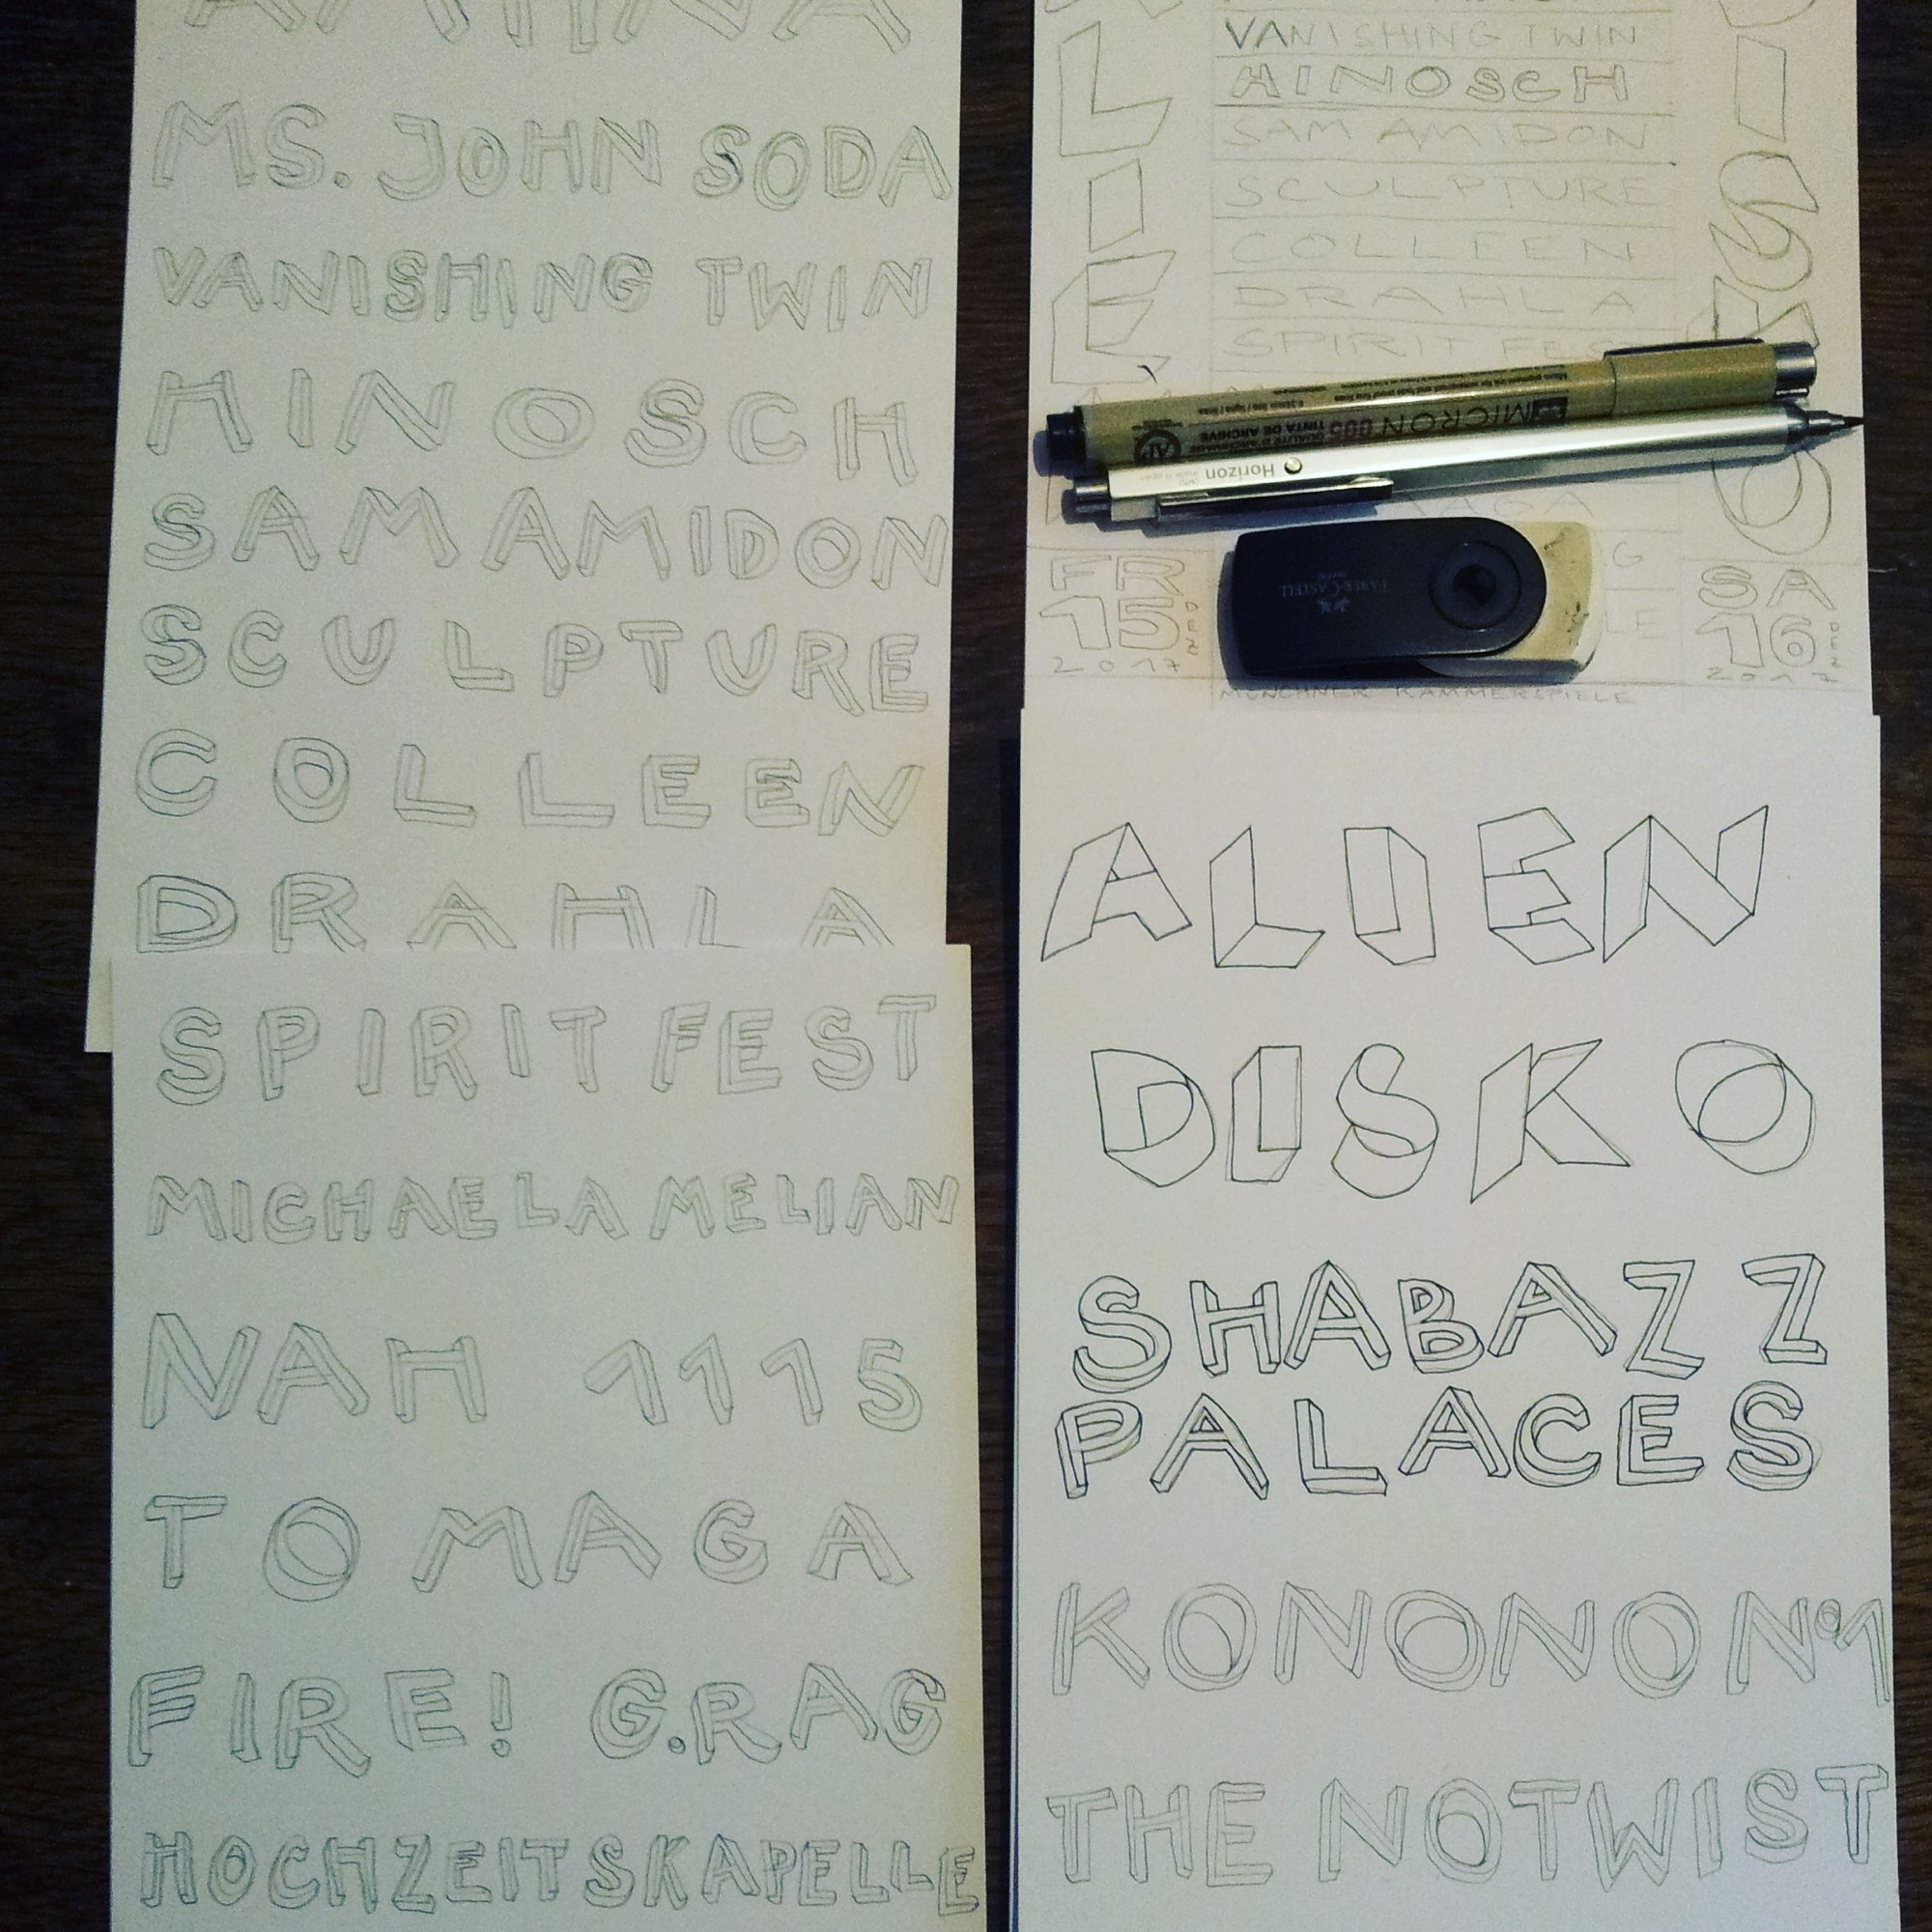 MS. JOHN SODA
VANISHING TWIN
HINOSCH
SAM AMIDON
SCULPTURE
COLLEEN
DRAHLA
SPIRIT FEST
MICHAELA MELIAN
NAH 1115
TOMAGA
FIRE! G.RAG
HOCHZEITSKAPELLE
VANISHING TWIN
HINOSCH
SAM AMIDON
SCULPTURE
COLLEEN
DRAHLA
SPIRIT FEST
MICRON 005
TINTA DE ARCHIVE
AP
Horizon
FABER-CASTELL
FR
15 DEZ
2017
SA
16 DEZ
2017
MÜNCHNER KAMMERSPIELE
ALIEN
DISKO
SHABAZZ
PALACES
KONONO Nº1
THE NOTWIST